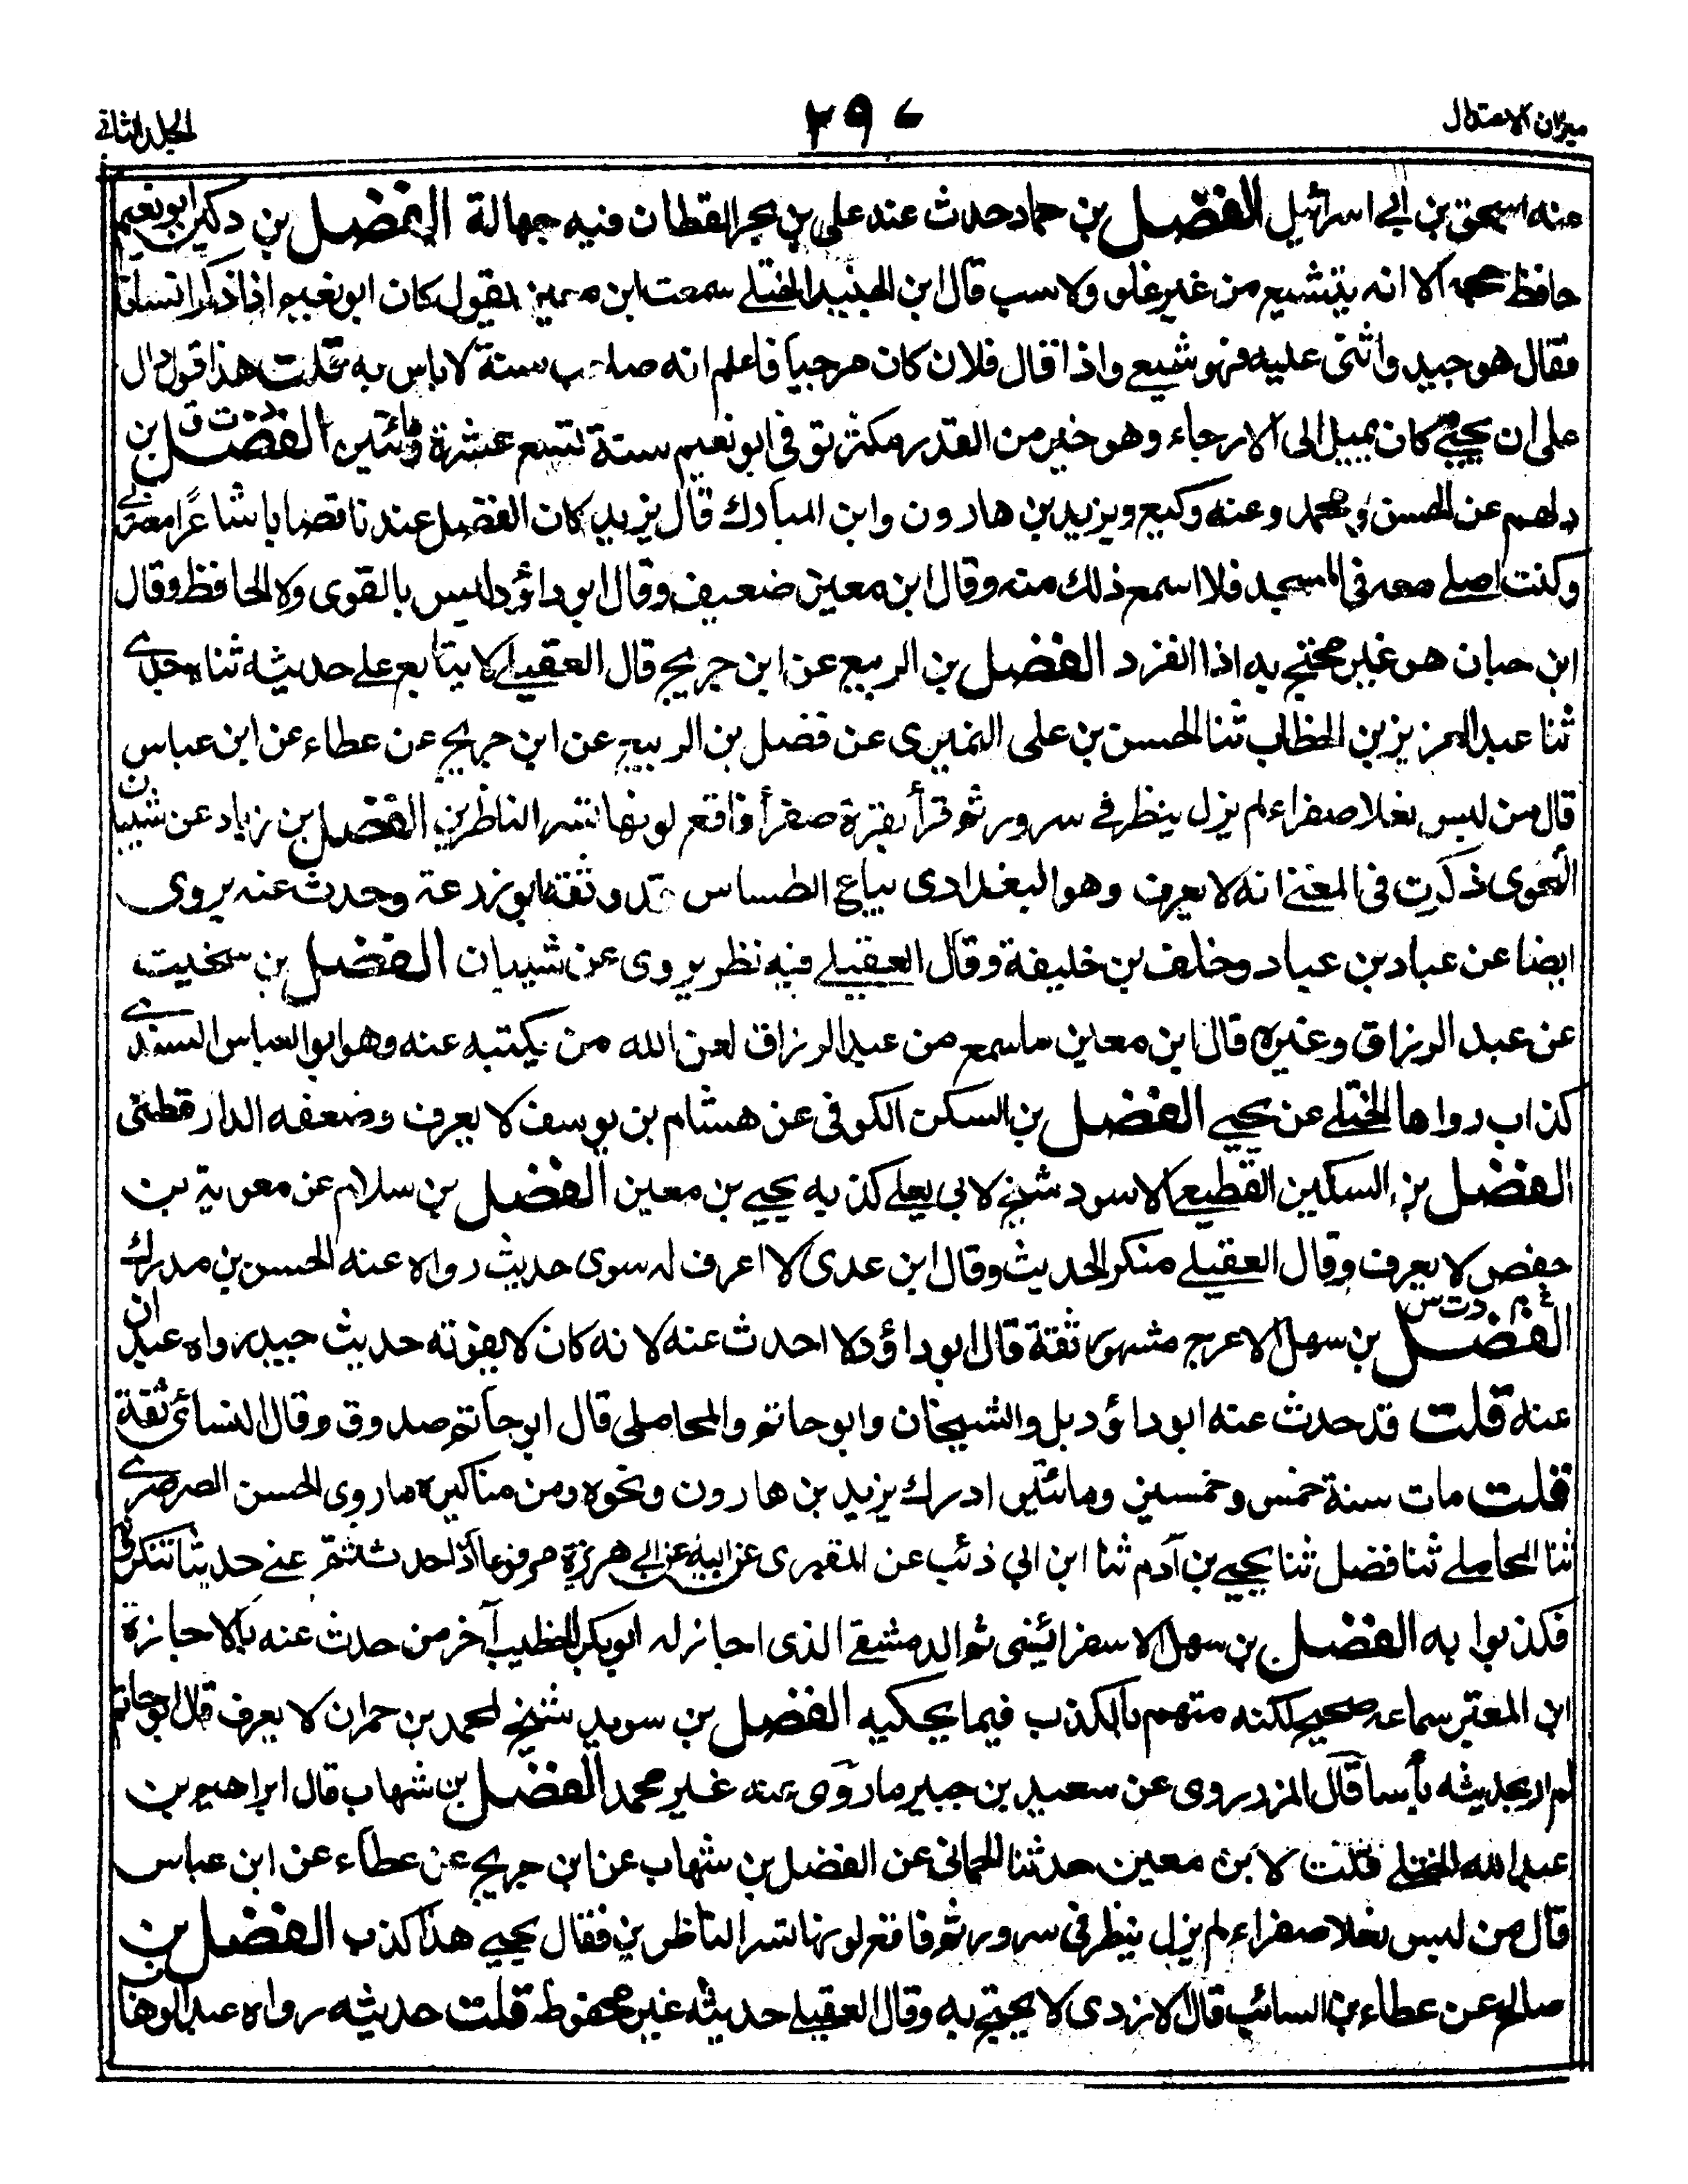 ميزان الاعتدال
٢٩٧
الجلد الثانى
عنه اسحق بن ابى اسرائيل الفضل بن حماد حدث عنه على بن بحر القطان فيه جهالة الفضل بن دكين ابو نعيم
حافظ حجة الا انه يتشيع من غير غلو ولا سب قال ابن الجنيد الختلے سمعت ابن معين يقول كان ابو نعيم اذا ذكر انسانا
فقال هو جيد واثنى عليه فهو شيعے واذا قال فلان كان مرجيا فاعلم انه صاحب سنة لا باس به قلت هذا قول دال
على ان يحيے كان يميل الى الارجاء وهو خير من القدر مكثر توفى ابو نعيم سنة تسع عشرة ومائتين الفضل بن
دلهم عن الحسن ومحمد وعنه وكيع ويزيد بن هارون وابن المبارك قال يزيد كان الفضل عندنا قصابا شاعرًا معتزلے
وكنت اصلے معه فى المسجد فلا اسمع ذلك منه وقال ابن معين ضعيف وقال ابو داؤد ليس بالقوى ولا الحافظ وقال
ابن حبان هو غير محتج به اذا انفرد الفضل بن الربيع عن ابن جريج قال العقيلے لا يتابع على حديثه ثناه جدے
ثنا عبد العزيز بن الخطاب ثنا الحسن بن على النميرى عن فضل بن الربيع عن ابن جريج عن عطاء عن ابن عباس
قال من لبس نعلا صفراء لم يزل ينظر فے سرور ثم قرأ بقرة صفرأ فاقع لونها تسر الناظرين الفضل بن زياد عن شيبان
النحوى ذكرت فى المغنے انه لا يعرف وهو البغدادى بياع الطساس قد وثقه ابو زرعة وحدث عنه يروى
ايضا عن عباد بن عباد وخلف بن خليفة وقال العقيلے فيه نظر يروى عن شيبان الفضل بن سخيت
عن عبد الرزاق وغيره قال ابن معين ما سمع من عبد الرزاق لعن الله من يكتبه عنه وهو ابو العباس السندے
كذاب رواها الختلے عن يحيے الفضل بن السكن الكوفى عن هشام بن يوسف لا يعرف وضعفه الدارقطنى
الفضل بن السكين القطيعے الاسود شيخ لابى يعلے كذبه يحيے بن معين الفضل بن سلام عن معوية بن
حفص لا يعرف وقال العقيلے منكر الحديث وقال ابن عدى لا اعرف له سوى حديث رواه عنه الحسن بن مدرك
الفضل بن سهل الاعرج مشهور ثقة قال ابو داؤد لا احدث عنه لانه كان لا يفوته حديث جيد رواه عبدان
عنه قلت قد حدث عنه ابو داؤد بل والشيخان وابو حاتم والمحاملى قال ابو حاتم صدوق وقال النسائى ثقة
قلت مات سنة خمس وخمسين ومائتين ادرك يزيد بن هارون ونحوه ومن مناكيره ما روى الحسن الصرصرے
ثنا المحاملے ثنا فضل ثنا يحيے بن آدم ثنا ابن ابي ذئب عن المقبرى عن ابيه عن ابى هريرة مرفوعا اذا حدثتم عنے حديثا تنكرونه
فكذبوا به الفضل بن سهل الاسفرائينى ثم الدمشقے الذى اجاز له ابو بكر الخطيب آخر من حدث عنه بالاجازة
ابن المقير سماعه صحيح لكنه متهم بالكذب فيما يحكيه الفضل بن سويد شيخ لمحمد بن حمران لا يعرف قال ابو حاتم
لم ار بحديثه بأسا قال المزد يروى عن سعيد بن جبير ما روى عنه غير محمد الفضل بن شهاب قال ابراهيم بن
عبد الله الختلے قلت لابن معين حدثنا الحمانى عن الفضل بن شهاب عن ابن جريج عن عطاء عن ابن عباس
قال من لبس نعلا صفراء لم يزل ينظر فى سرور ثم فاقع لونها تسر الناظرين فقال يحيے هذا كذب الفضل بن
صالح عن عطاء بن السائب قال الازدى لا يحتج به وقال العقيلے حديثه غير محفوظ قلت حديثه رواه عبد الوهاب